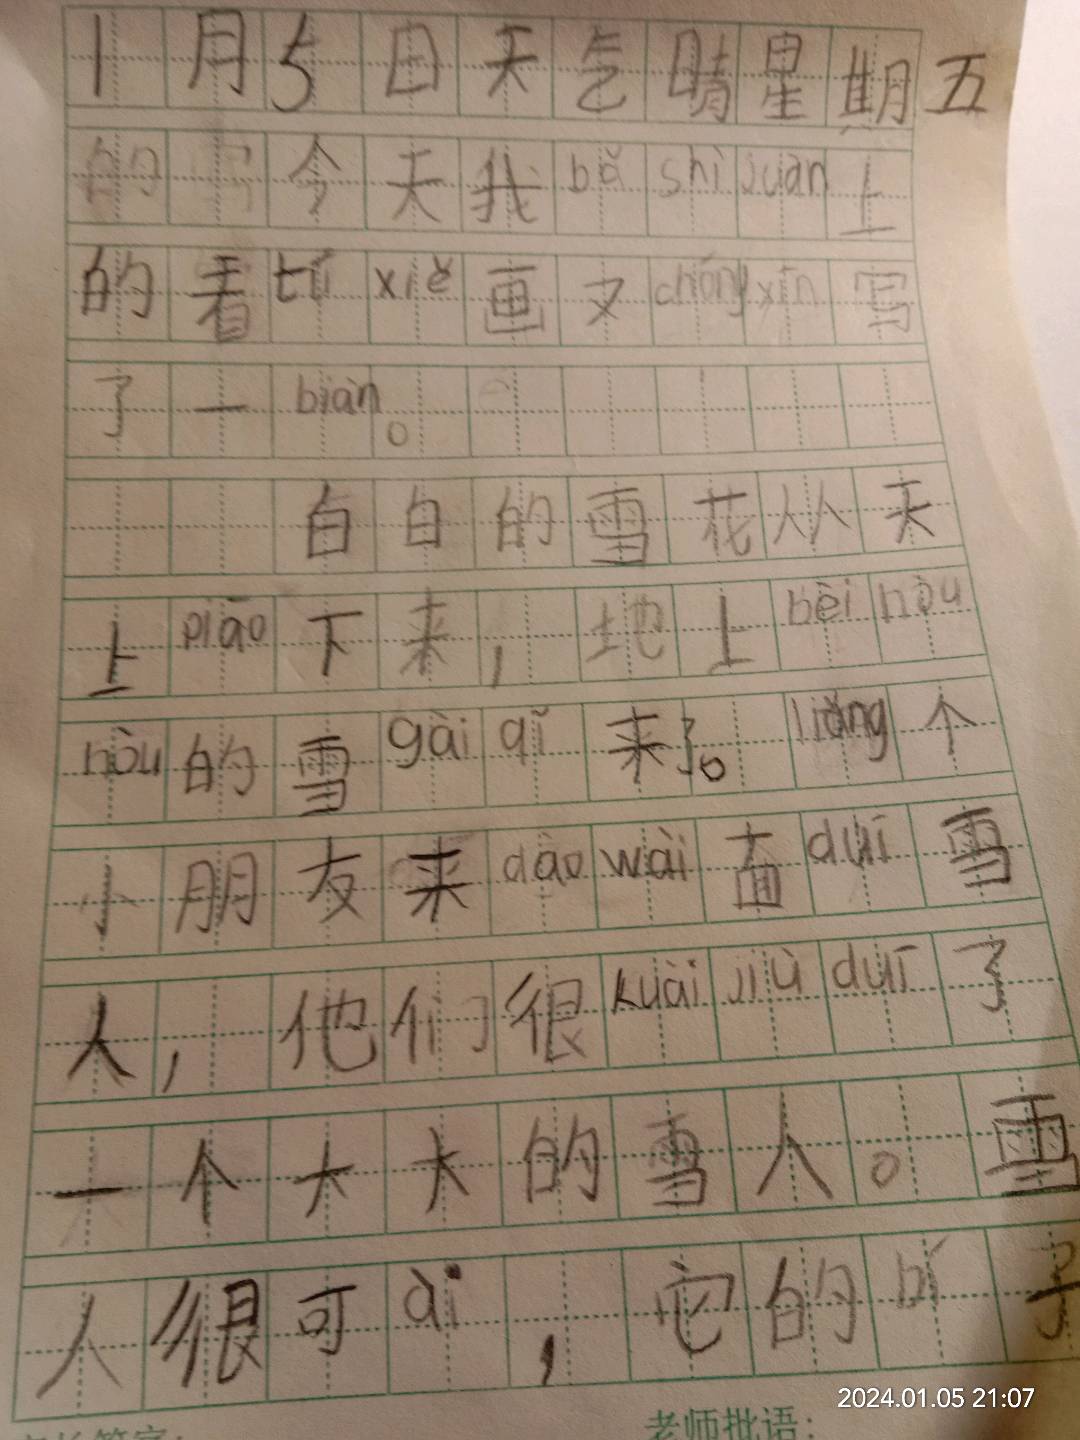 1月5日天气晴星期五
今天我bǎ shì juàn上
的看tú xiě画文chóng xīn写
了一biàn。
白白的雪花从天
上piāo下来，地上bèi hòu
hòu的雪gài qǐ来了。liǎng个
小朋友来dào wài面duī雪
人，他们很kuài jiù duī了
一个大大的雪人。雪
人很可ài，它的bí子
老师批语：
2024.01.05 21:07